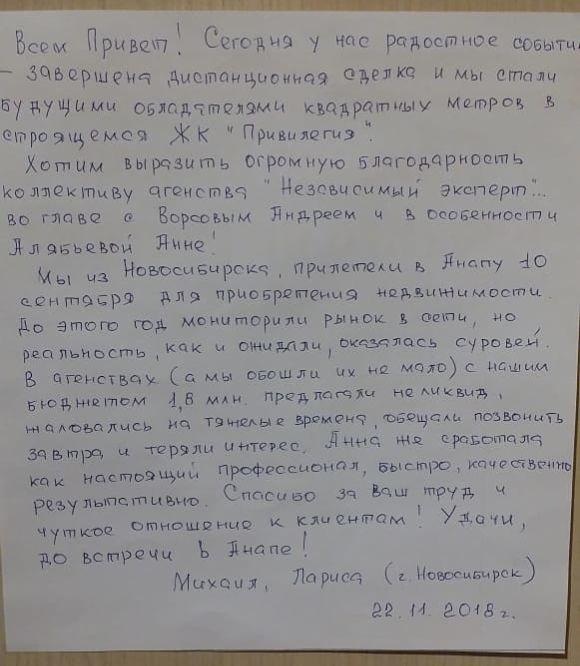 Всем Привет! Сегодня у нас радостное событи
- завершена дистанционная сделка и мы стали
будущими обладателями квадратных метров в
строящемся ЖК "Привилегия".
Хотим выразить огромную благодарность
коллективу агенства "Независимый эксперт"...
во главе с Ворсовым Андреем и в особенности
Алябьевой Анне!
Мы из Новосибирска, прилетели в Анапу 10
сентября для приобретения недвижимости.
До этого год мониторили рынок в сети, но
реальность, как и ожидали, оказалась суровей.
В агенствах (а мы обошли их не мало) с нашим
бюджетом 1,8 млн. предлагали не ликвид,
жаловались на тяжелые времена, обещали позвонить
завтра и теряли интерес. Анна же сработала
как настоящий профессионал, быстро, качественно
результативно. Спасибо за ваш труд и
чуткое отношение к клиентам! Удачи,
до встречи в Анапе!
Михаил, Лариса (г. Новосибирск)
22.11.2018 г.